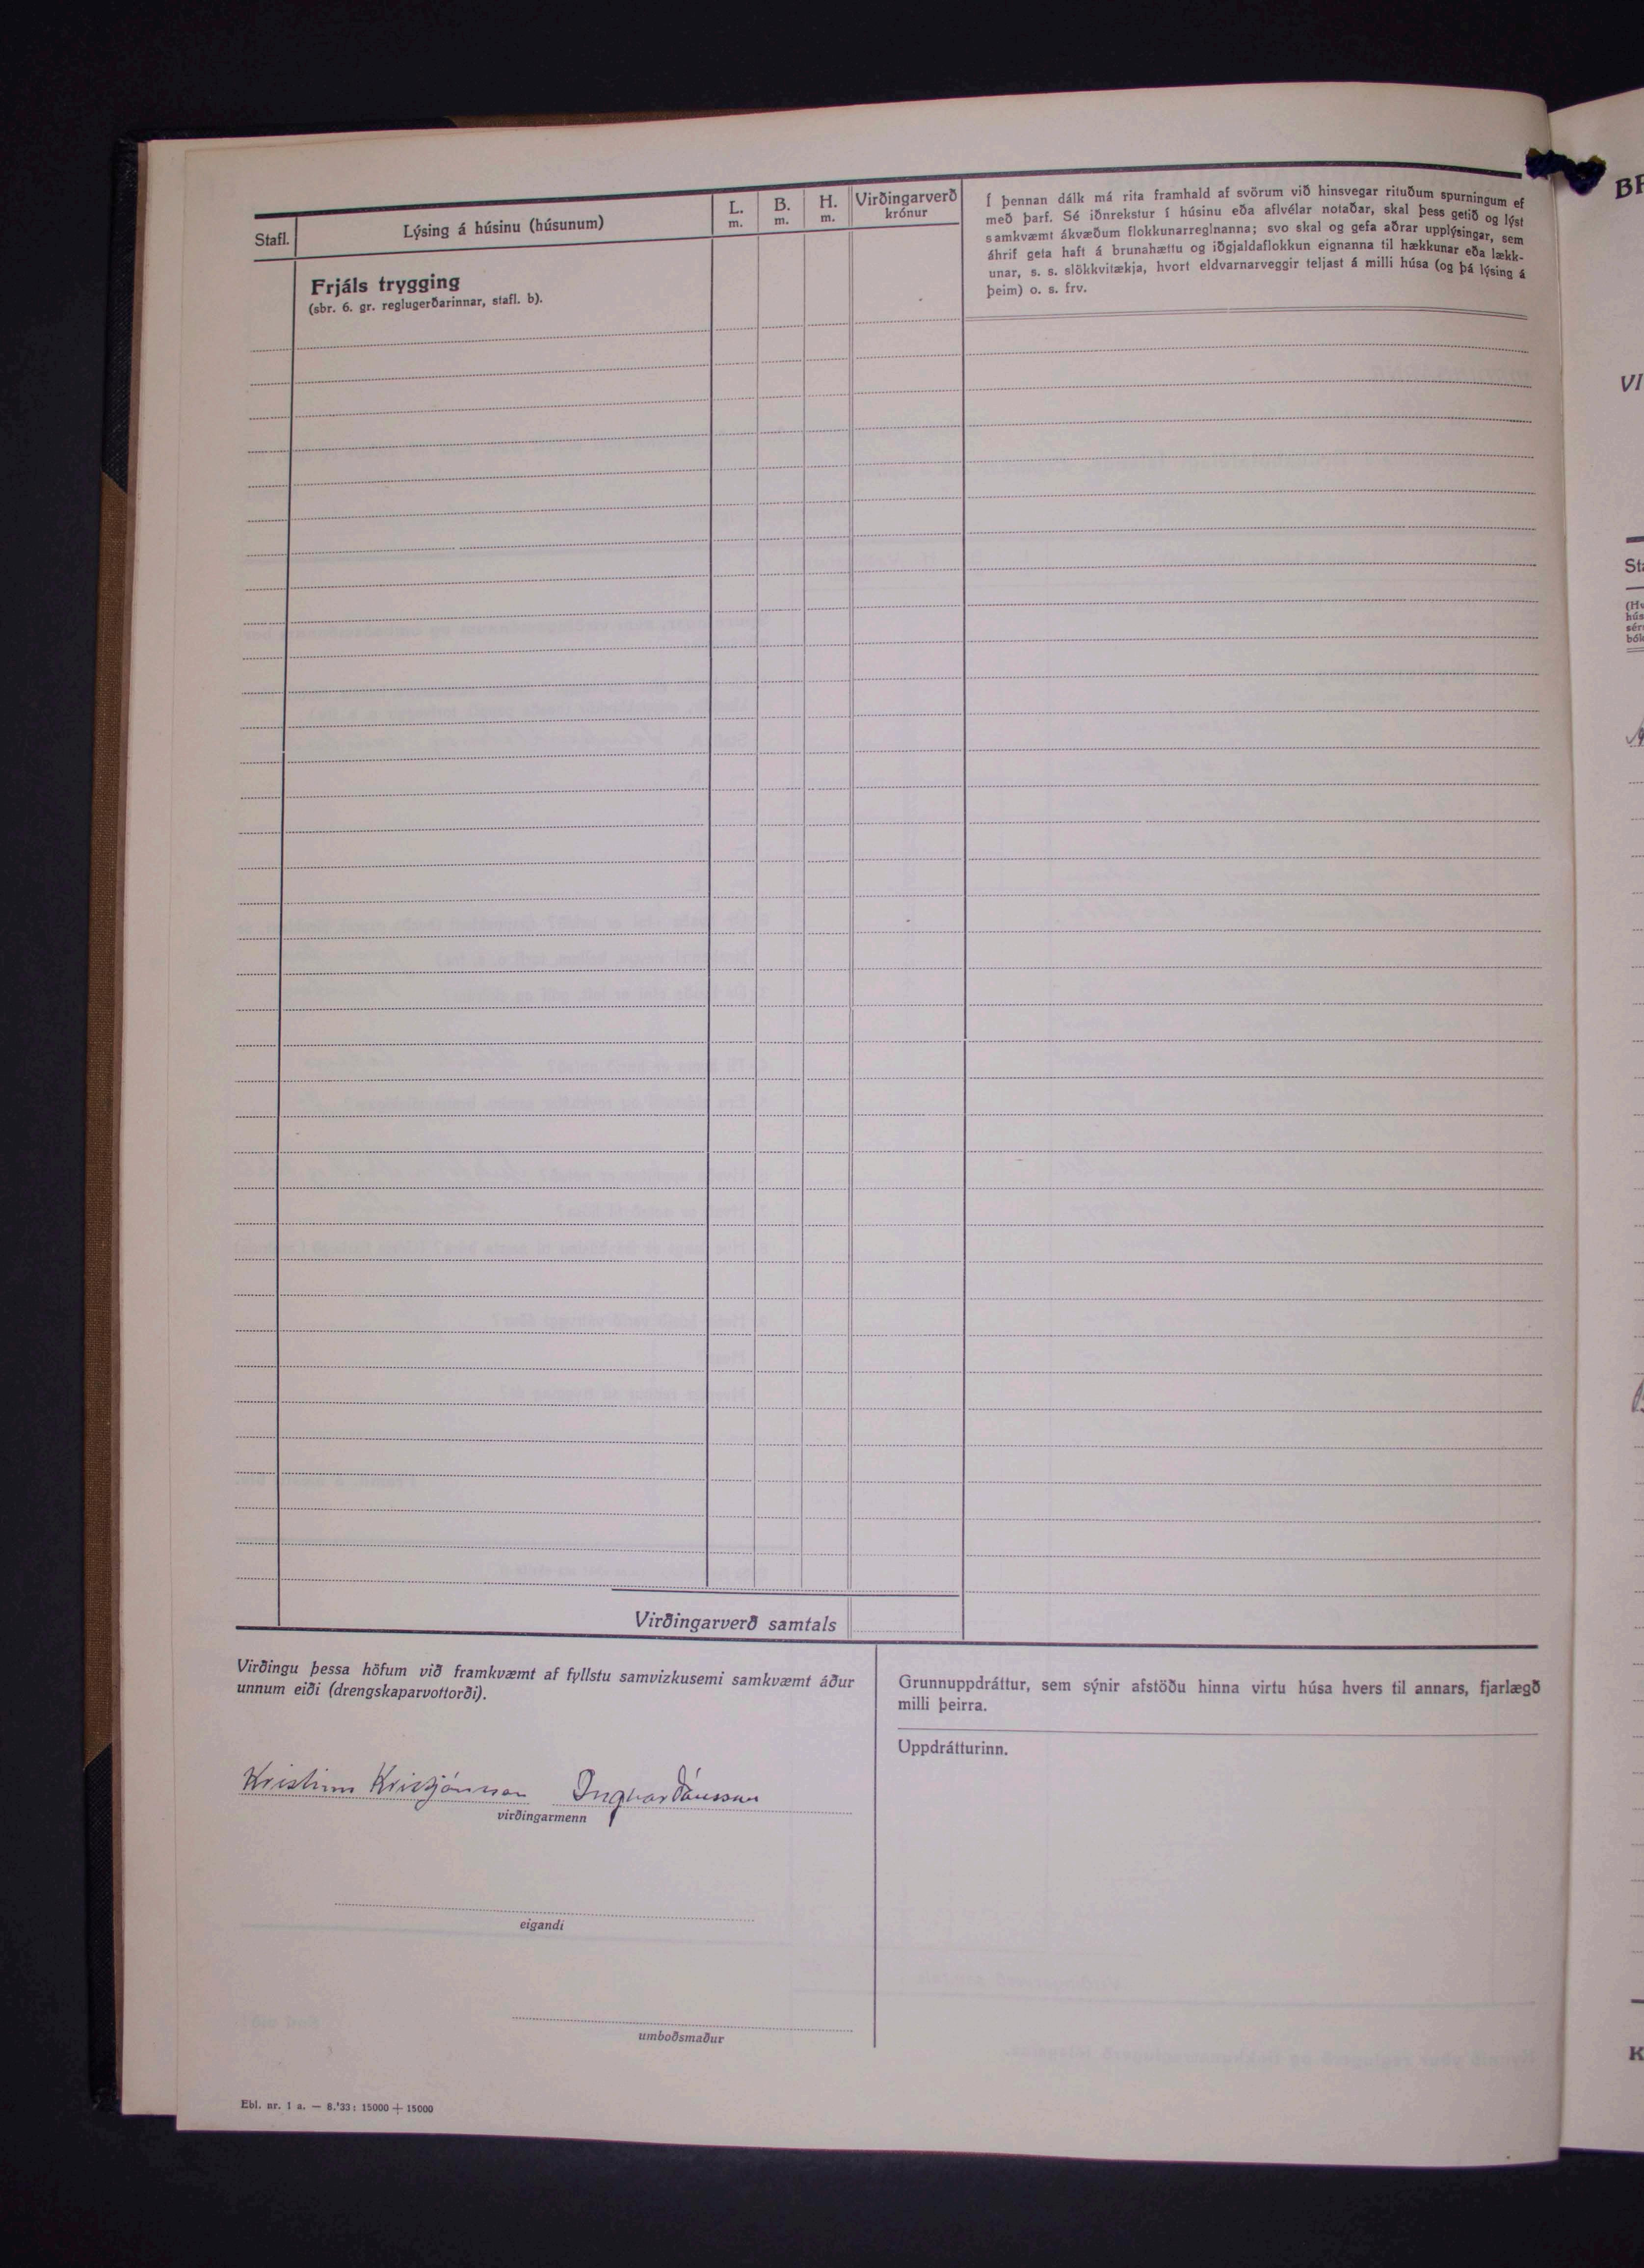 Stafl.
Lýsing á húsinu (húsunum)
L.
m.
B.
m.
H.
m.
Virðingarverð
krónur
Í þennan dálk má rita framhald af svörum við hinsvegar rituðum spurningum ef
með þarf. Sé iðnrekstur í húsinu eða aflvélar notaðar, skal þess getið og lýst
samkvæmt ákvæðum flokkunarreglnanna; svo skal og gefa aðrar upplýsingar, sem
áhrif geta haft á brunahættu og iðgjaldaflokkun eignanna til hækkunar eða lækk-
unar, s. s. slökkvitækja, hvort eldvarnarveggir teljast á milli húsa (og þá lýsing á
þeim) o. s. frv.
Frjáls trygging
(sbr. 6. gr. reglugerðarinnar, stafl. b).
Virðingarverð samtals
Virðingu þessa höfum við framkvæmt af fyllstu samvizkusemi samkvæmt áður
unnum eiði (drengskaparvottorði).
Kristinn Kristjánsson Ingvar Jónsson
virðingarmenn
eigandi
umboðsmaður
Grunnuppdráttur, sem sýnir afstöðu hinna virtu húsa hvers til annars, fjarlægð
milli þeirra.
Uppdrátturinn.
Ebl. nr. 1 a. — 8.'33: 15000 + 15000